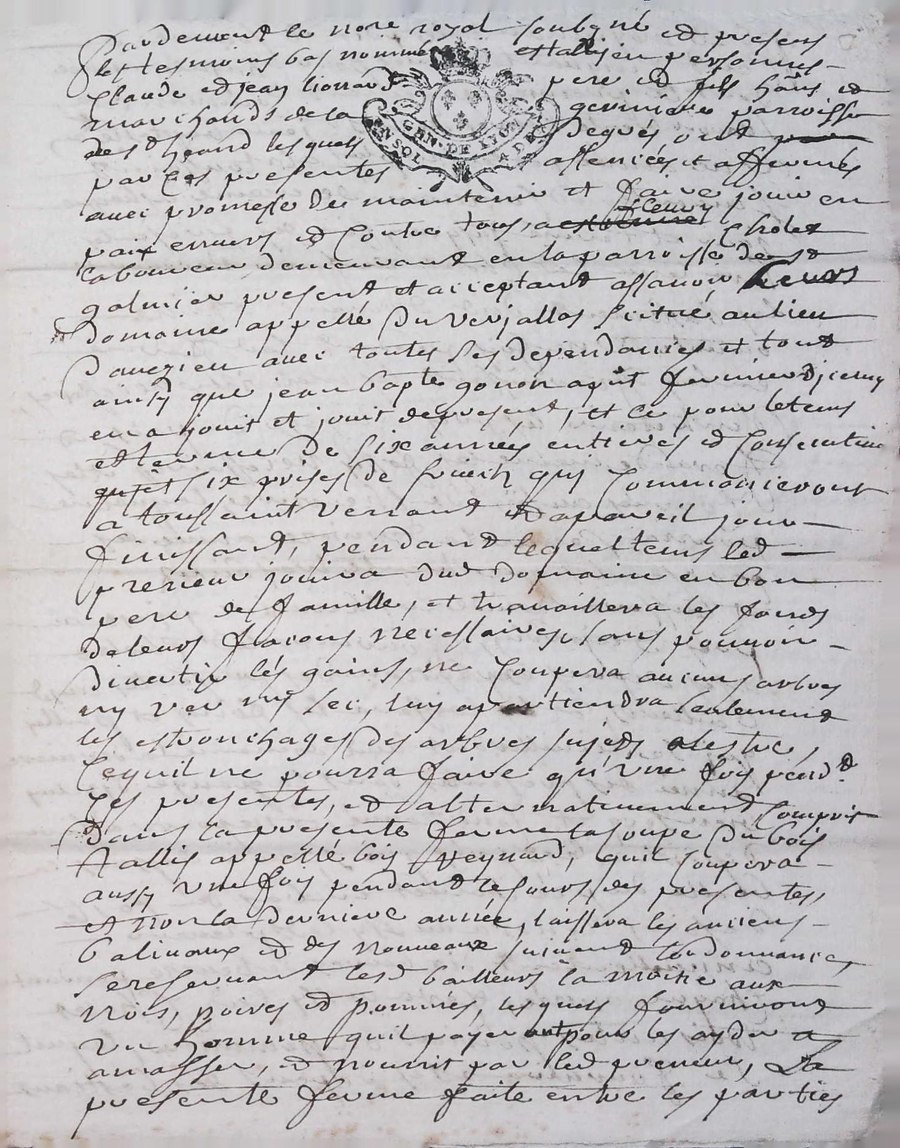 Pardevant le no.re royal soubsigné et presens
les tesmoins bas nommes establis en personnes
Claude et jean pere et fils habs et
marchands de la paroisse
de st heand lesquels de gres ont
par ces presentes assencés et affermés
avec promesse de maintenir et faire jouir en
paix envers et contre tous, a fleury Cholet
laboureur demeurant en la parroisse de st
galmier present et acceptant assavoir leurs
domaine appellé du verjallas scitué au lieu
d'avezieu avec toutes ses dependances et tout
ainsy que jean bapte gonon fermier d'jceluy
en a jouit et jouit de present, et ce pour le tems
et terme de six années entieres et consecutives
six prises de fruich quj commancieront
a toussaint venant et a pareil jour
finissant, pendant lequel tems led
preneur jouira dud domaine en bon
pere de famille, et travaillera les fonds
de leurs facons necessaires, sans pouvoir
divertir les gains, ne coupera aucuns arbres
ny ver ny sec, luy apartiendra seulement
les estronchages des arbres sujets a lestre,
ce quil ne pourra faire qu'une fois pend.t
ces presentes, et alternativement compris
dans la presente ferme la coupe du bois
tallis appellé bois peynard, quil coupera
aussy une fois pendant le cours des presentes,
et non la derniere année, laissera les anciens
balivaux et des nouveaux suivant lordonnance,
se reservant lesd bailleurs la moitié aux
nois, poires et pommes, lesquels fourniront
un homme quil payeront pour les ayder a
amasser, et nourrit par led preneur, La
presente ferme faite entre les parties
GEN. DE LYON
UN SOL 4 D.